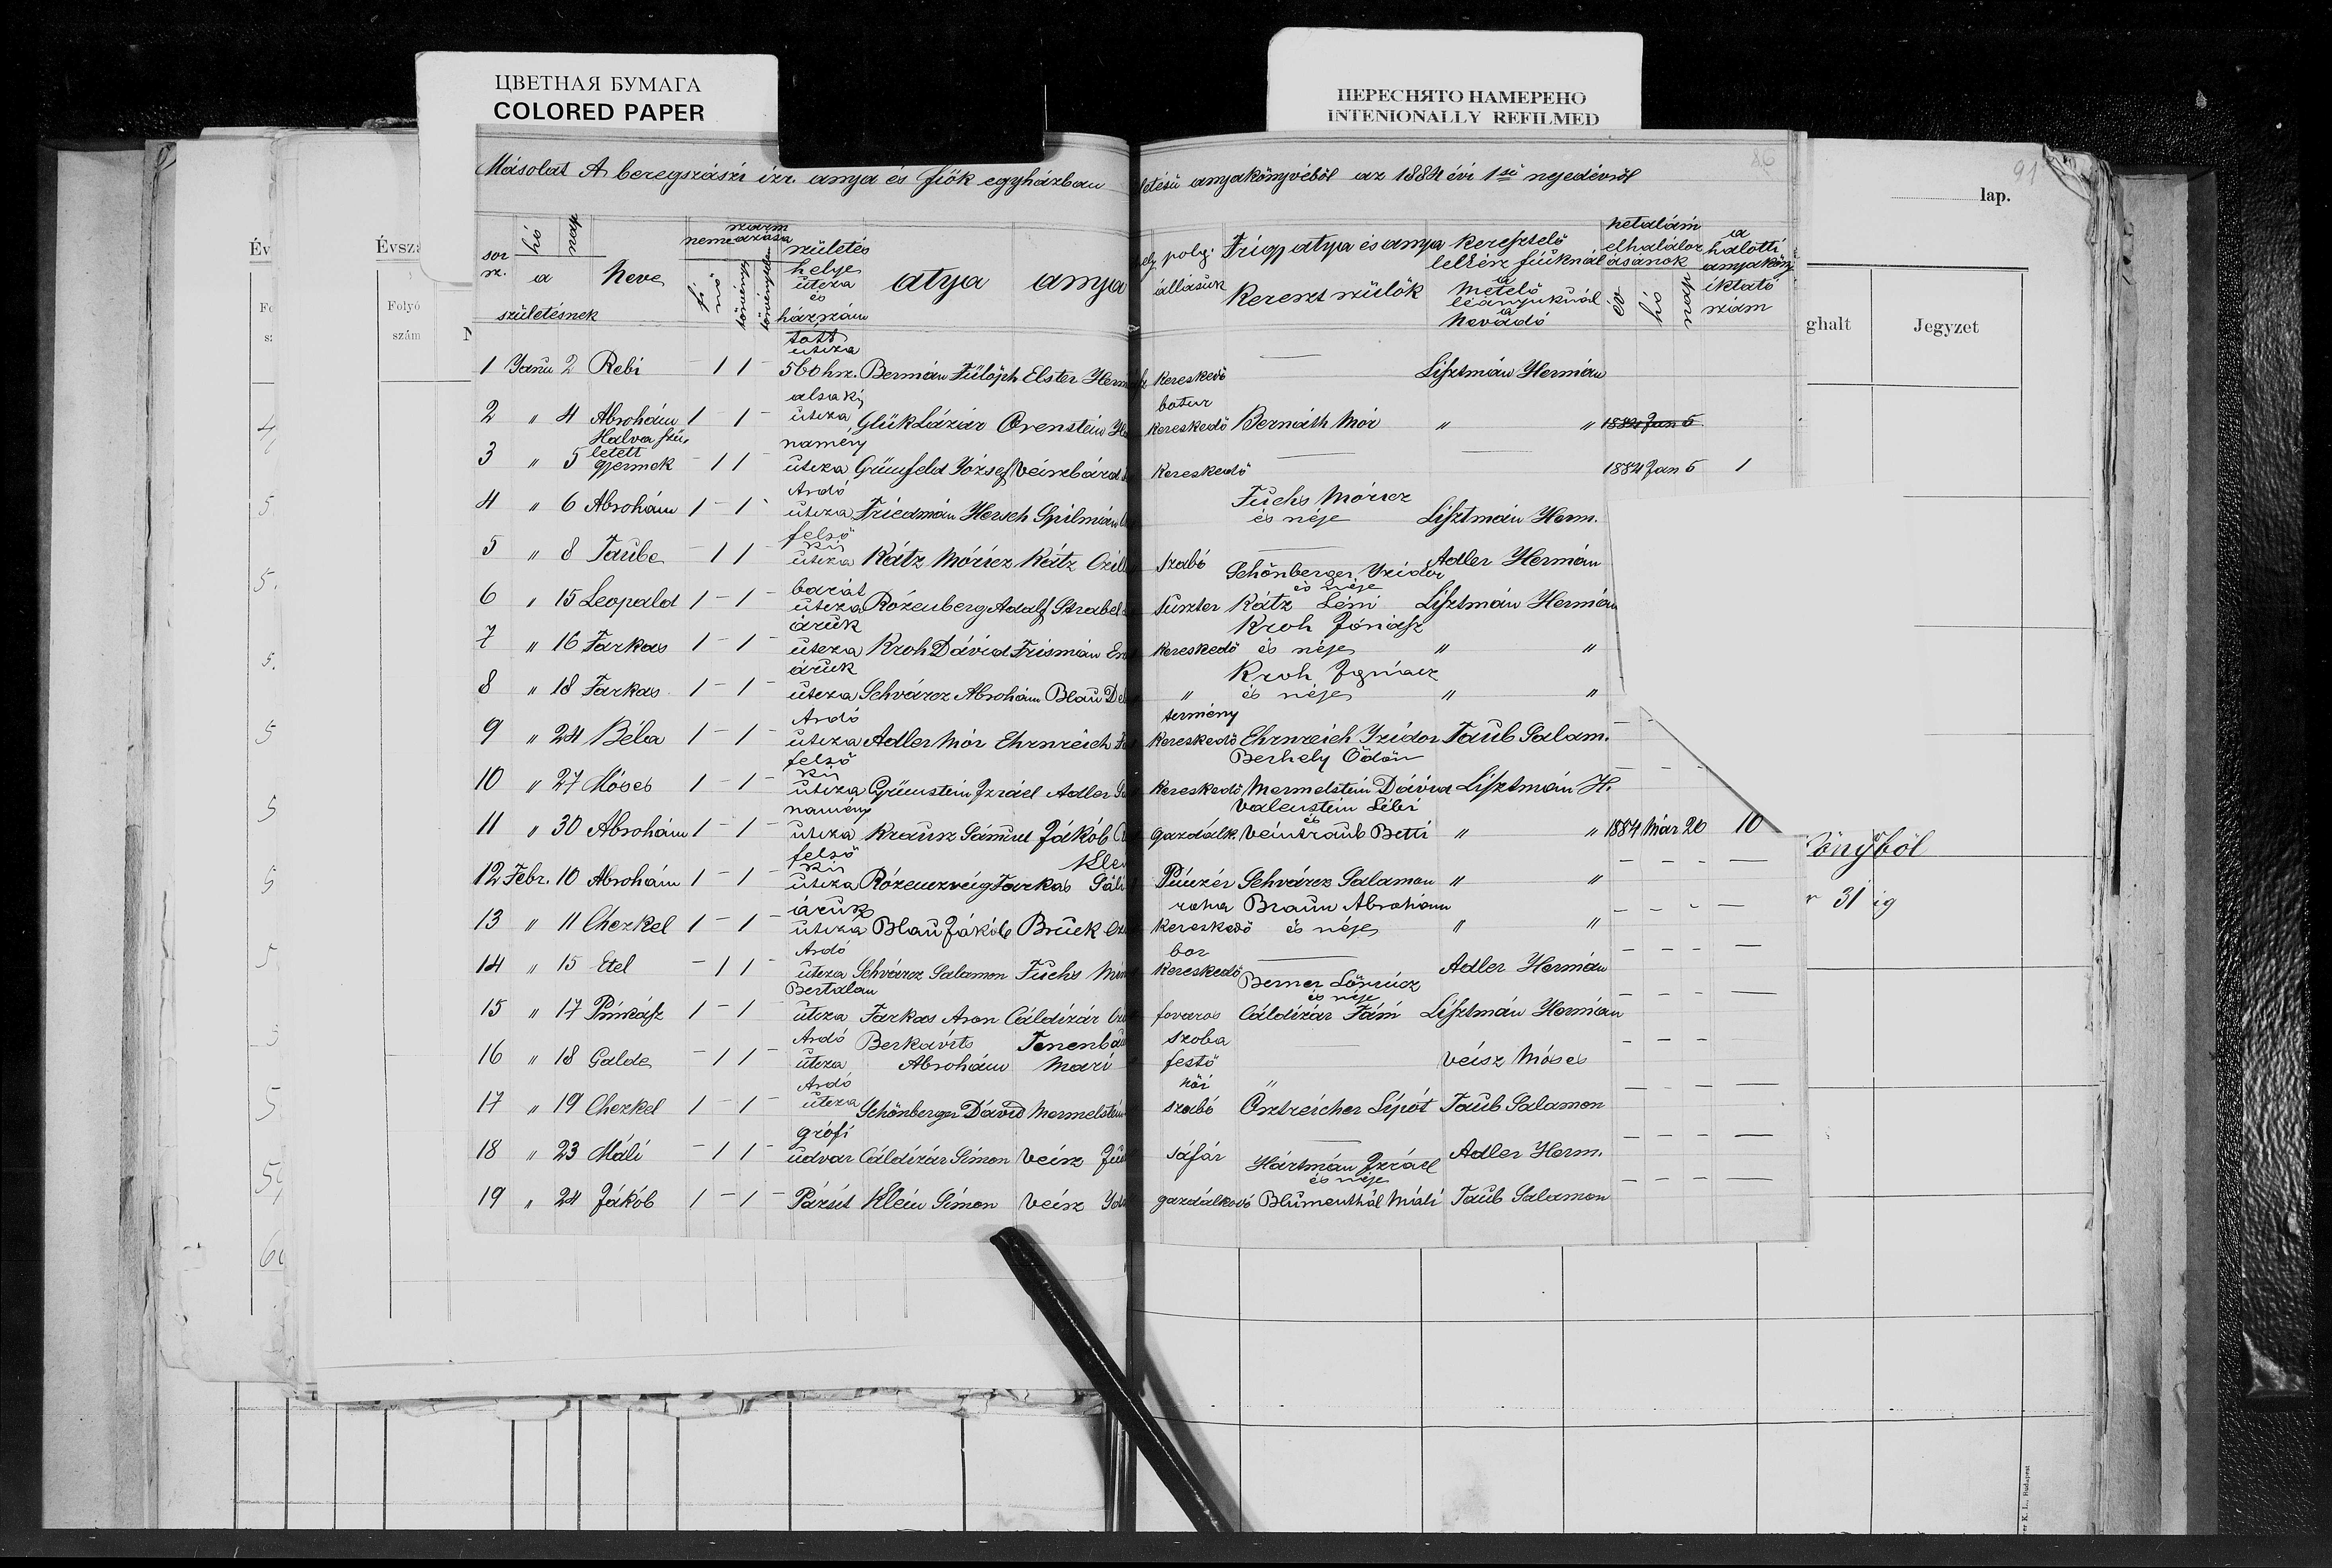 ЦВЕТНАЯ БУМАГА
COLORED PAPER
ПЕРЕСНЯТО НАМЕРЕНО
INTENIONALLY REFILMED
Másolat A beregszászi izr. anya és fiók egyházban letésü anyakönyvéböl az 1884 évi 1sö nyedévröl
86
91
lap.
Év
Évszá
Folyó
szám
ghalt
Jegyzet
sor sz. hó nap a születésnek
neve
neme fi nö
származása törvényes törvénytelen
születés helye utcza és házszám
atya
anya
polg. állásuk
Frigy atya és anya
Kereszt szülök
Keresztelö lelkész fiuknál a metelö leányuknál a névadó
netalám elhalálozásának év hó nap
a halotti anyakönyv iktató szám
1 Janu 2 Rebi - 1 1 - tott utcza 560 hsz. Bermán Fülöph Elster Herm kereskedö — Lisztmán Hermán
2 " 4 Abrohám 1 - 1 - alsaki utcza Glük Lázár Orenstein botur kereskedö Bernáth Mór " " 1884 Jan 5
3 " 5 Halva szü letett gyermek - 1 1 namény utcza Grünfeld József Veiszbárd kereskedö — — 1884 Jan 5 1
4 " 6 Abrohám 1 - 1 - Ardó utcza Friedmán Hersch Spilmán Fuchs Móricz és néje Lisztmán Herm.
5 " 8 Taube - 1 1 felsö kü utcza Kátz Móricz Kátz Czili szabó — Adler Hermán
6 " 15 Leopald 1 - 1 - barát utcza Rózenberg Adalf Strabel Suszter Schönberger Yzidor és néje Kátz Léni Lisztmán Hermán
7 " 16 Farkas 1 - 1 - áruk utcza Kroh Dávid Frismán kereskedö Kroh Jónász és néje " "
8 " 18 Farkas 1 - 1 - áruk utcza Schvárcz Abrohám Blau " Kroh Ignácz és néje " "
9 " 24 Béla 1 - 1 - Ardó utcza Adler Mór Ehrnreich termény kereskedö Ehrnreich Yzidor Taub Salam.
10 " 27 Móses 1 - 1 - felsö kü utcza Grünstein Izráel Adler kereskedö Berhely Ödön Mermelstein Dávid Lisztmán H.
11 " 30 Abrohám 1 - 1 - namény utcza Krausz Sámuel Jákób gazdálk. Valenstein Lébi és Veintraub Betti " " 1884 Már 20 10
12 Febr. 10 Abrohám 1 - 1 - felsö kü utcza Rózenzveig Farkas Klei Sáli Pinczér Schvárcz Salamon " "
13 " 11 Chezkel 1 - 1 - áruk utcza Blau Jákób Bruck roha kereskedö Braun Abrohám és néje " "
14 " 15 Etel - 1 1 Ardó utcza Schvárcz Salamon Fuchs bor kereskedö — Adler Hermán
15 " 17 Pinkász 1 - 1 - Bertalan utcza Farkas Aron Cáldizár fovaros Berner Lörincz és néje Cáldizár Fáni Lisztmán Hermán
16 " 18 Galde - 1 1 - Ardó utcza Berkávits Abrohám Tenenbau Mari szoba festö — Veisz Móses
17 " 19 Chezkel 1 - 1 - Ardó utcza Schönberger Dávid Mermelstein nöi szabó " Osztreicher Lipót Taub Salamon
18 " 23 Máli - 1 1 - grófi udvar Cáldizár Simon Veisz sáfár — Adler Herm.
19 " 24 Jákób 1 - 1 - Pázsit Klein Simon Veisz gazdálkodó Hártmán Izráel és néje Blumenthál Máli Taub Salamon
önyböl
r 31 ig
er K. I., Budapest